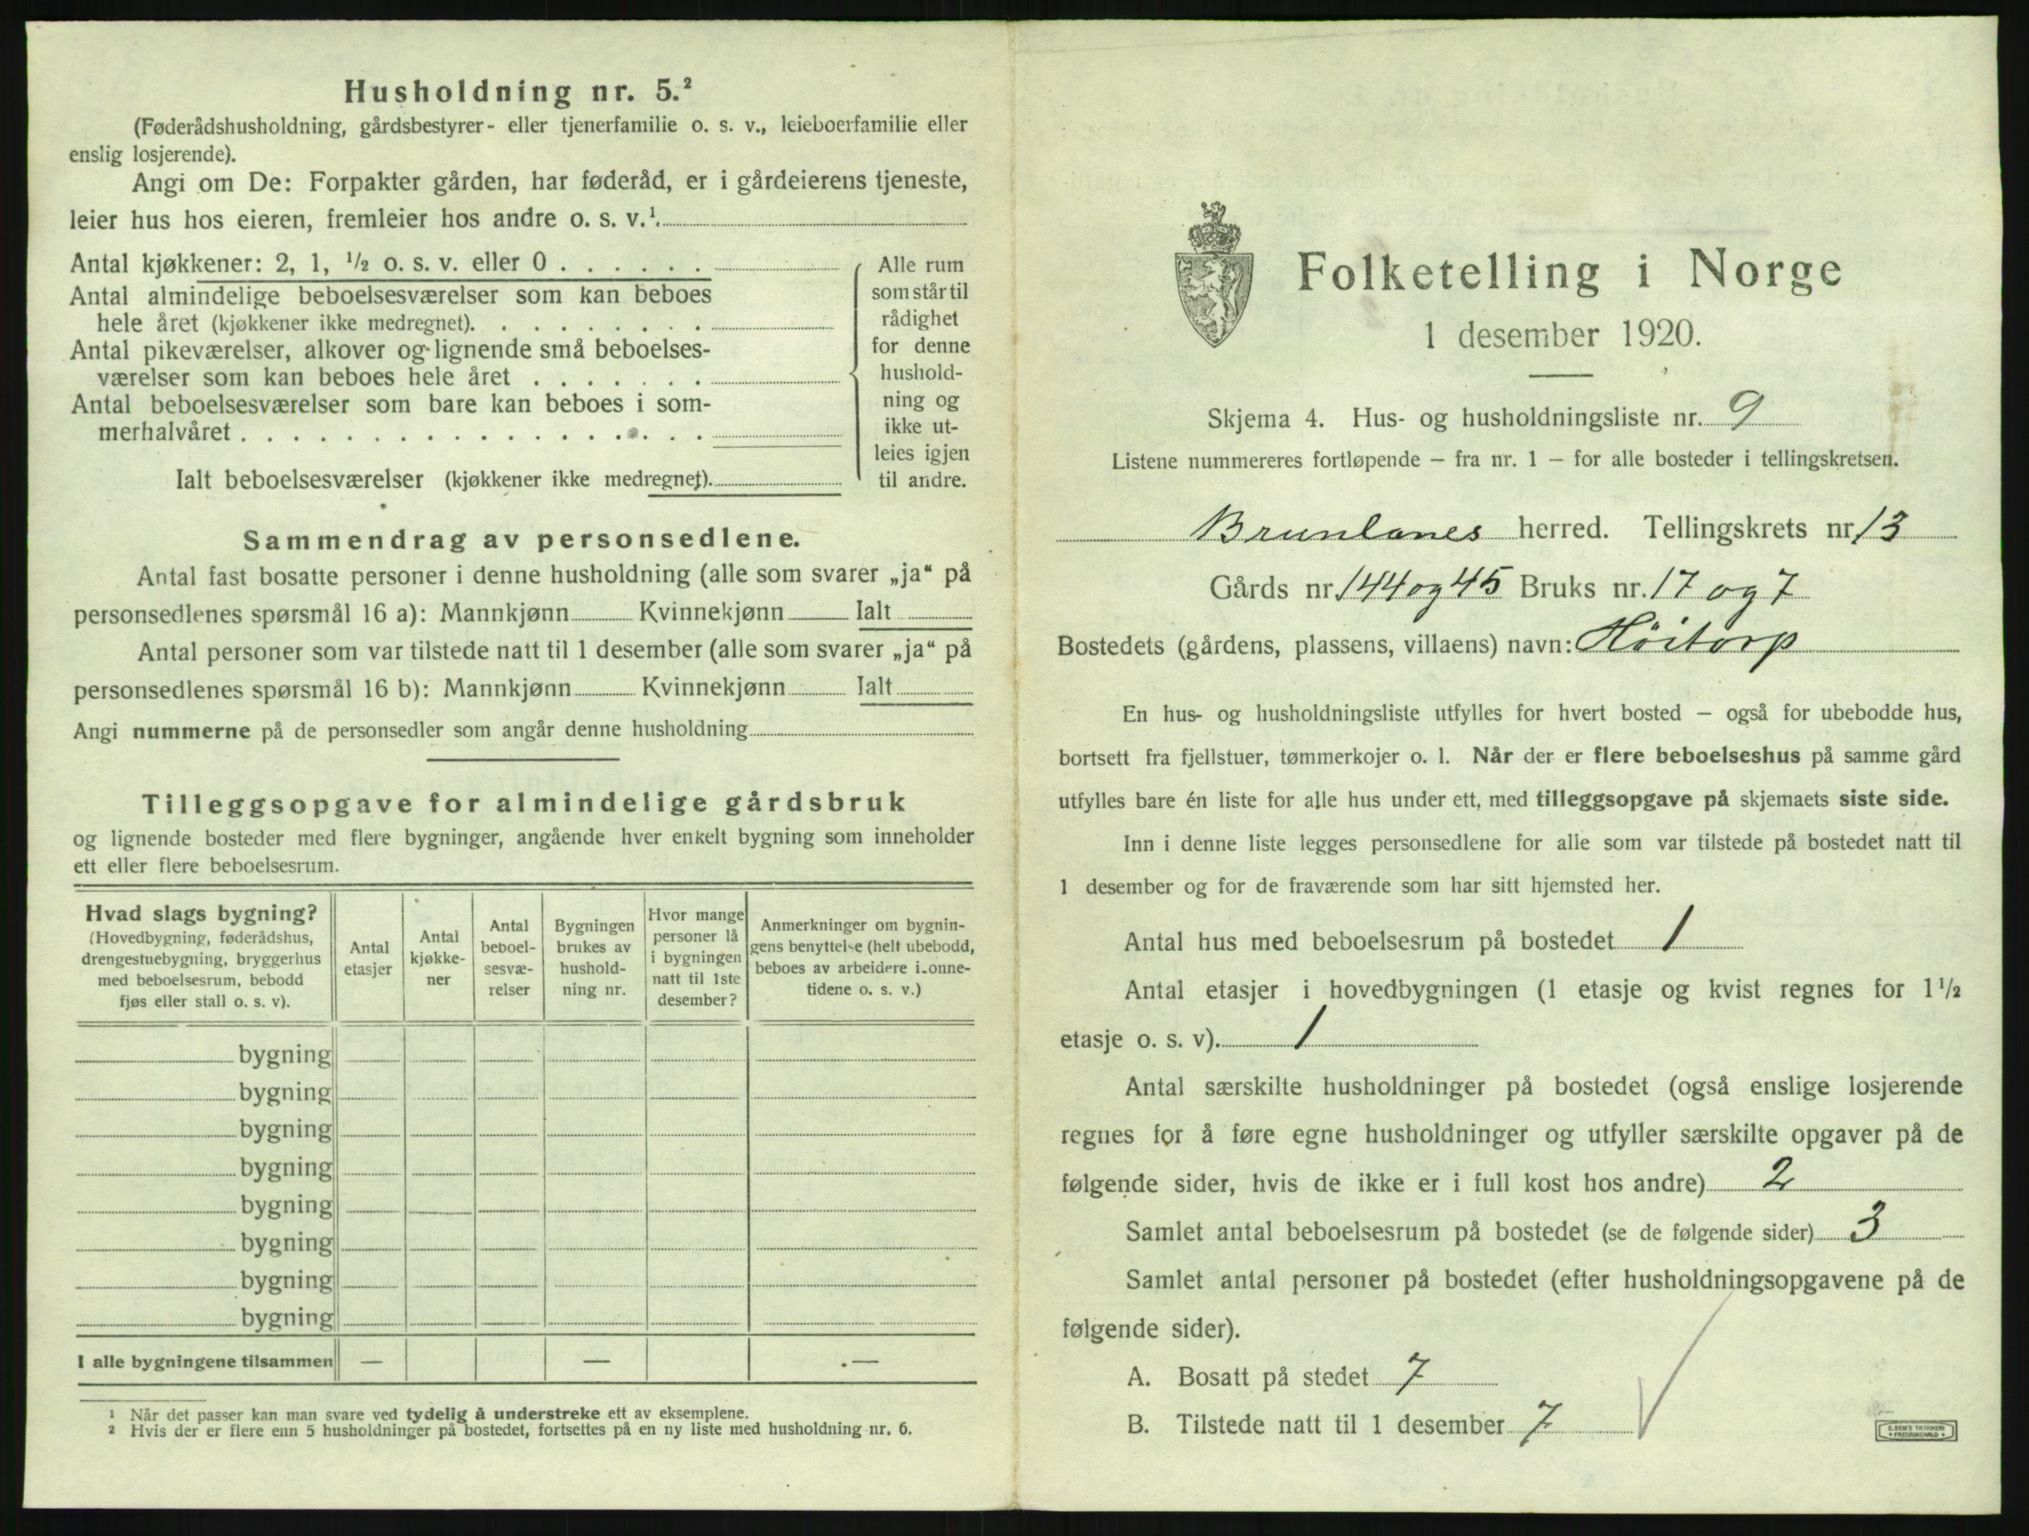 Husholdning nr. 5.²
(Føderådshusholdning, gårdsbestyrer- eller tjenerfamilie o. s. v., leieboerfamilie eller
enslig losjerende).
Angi om De: Forpakter gården, har føderåd, er i gårdeierens tjeneste,
leier hus hos eieren, fremleier hos andre o. s. v.¹.
Antal kjøkkener: 2, 1, ½ o. s. v. eller 0 . . . . . .
Antal almindelige beboelsesværelser som kan beboes
hele året (kjøkkener ikke medregnet). . . . . . . . .
Antal pikeværelser, alkover og lignende små beboelses-
værelser som kan beboes hele året . . . . . . .
Antal beboelsesværelser som bare kan beboes i som-
merhalvåret . . . . . . . . . . . . . . . . . .
Ialt beboelsesværelser (kjøkkener ikke medregnet).
Alle rum
som står til
rådighet
for denne
hushold-
ning og
ikke ut-
leies igjen
til andre.
Sammendrag av personsedlene.
Antal fast bosatte personer i denne husholdning (alle som svarer „ja“ på
personsedlenes spørsmål 16 a): Mannkjønn Kvinnekjønn Ialt
Antal personer som var tilstede natt til 1 desember (alle som svarer „ja“ på
personsedlenes spørsmål 16 b): Mannkjønn Kvinnekjønn Ialt
Angi nummerne på de personsedler som angår denne husholdning
Tilleggsopgave for almindelige gårdsbruk
og lignende bosteder med flere bygninger, angående hver enkelt bygning som inneholder
ett eller flere beboelsesrum.
Hvad slags bygning?
(Hovedbygning, føderådshus,
drengestuebygning, bryggerhus
med beboelsesrum, bebodd
fjøs eller stall o. s. v).
Antal
etasjer
Antal
kjøkke-
ner
Antal
beboel-
sesvæ-
relser
Bygningen
brukes av
hushold-
ning nr.
Hvor mange
personer lå
i bygningen
natt til 1ste
desember?
Anmerkninger om bygnin-
gens benyttelse (helt ubebodd,
beboes av arbeidere i onne-
tidene o. s. v.)
bygning
bygning
bygning
bygning
bygning
bygning
bygning
bygning
I alle bygningene tilsammen — — —
¹ Når det passer kan man svare ved tydelig å understreke ett av eksemplene.
² Hvis der er flere enn 5 husholdninger på bostedet, fortsettes på en ny liste med husholdning nr. 6.
Folketelling i Norge
1 desember 1920.
Skjema 4. Hus- og husholdningsliste nr. 9
Listene nummereres fortløpende – fra nr. 1 – for alle bosteder i tellingskretsen.
Brunlanes herred. Tellingskrets nr 13
Gårds nr. 144 og 45 Bruks nr. 17 og 7
Bostedets (gårdens, plassens, villaens) navn: Höitorp
En hus- og husholdningsliste utfylles for hvert bosted – også for ubebodde hus,
bortsett fra fjellstuer, tømmerkojer o. l. Når der er flere beboelseshus på samme gård
utfylles bare én liste for alle hus under ett, med tilleggsopgave på skjemaets siste side.
Inn i denne liste legges personsedlene for alle som var tilstede på bostedet natt til
1 desember og for de fraværende som har sitt hjemsted her.
Antal hus med beboelsesrum på bostedet 1
Antal etasjer i hovedbygningen (1 etasje og kvist regnes for 1½
etasje o. s. v). 1
Antal særskilte husholdninger på bostedet (også enslige losjerende
regnes for å føre egne husholdninger og utfyller særskilte opgaver på de
følgende sider, hvis de ikke er i full kost hos andre) 2
Samlet antal beboelsesrum på bostedet (se de følgende sider) 3
Samlet antal personer på bostedet (efter husholdningsopgavene på de
følgende sider).
A. Bosatt på stedet 7
B. Tilstede natt til 1 desember 7